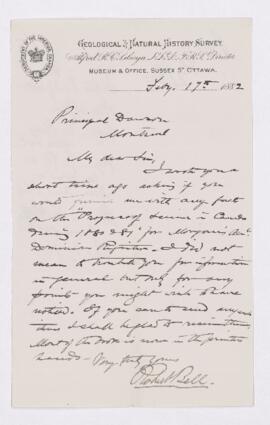 GEOLOGICAL & NATURAL HISTORY SURVEY.
Alfred R. C. Selwyn L.L.D. F.R.S. Director
MUSEUM & OFFICE, SUSSEX ST OTTAWA.
Feby. 17th 1882
Principal Dawson
Montreal
My dear Sir,
I wrote you a
short time ago asking if you
would furnish me with any facts
on the "Progress of Science in Canada
during 1880 & 81" for Morgan's An.
Dominion Register. I did not
mean to trouble you for information
in general but only for any
points you might wish to have
noted. If you can send any
this I shall be glad to receive
Most of the book is now in the printers
hands—
Very truly yours
Robert Bell.